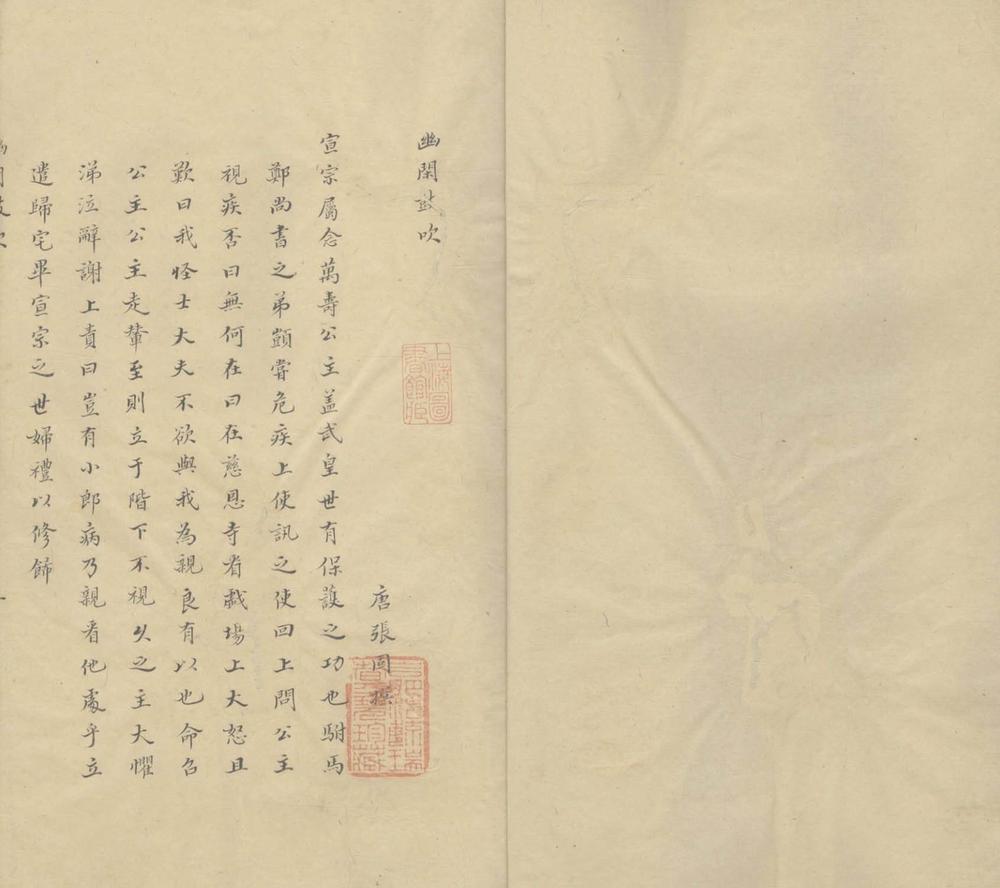 幽閑鼓吹
唐張固撰
宣宗屬念萬壽公主盖武皇世有保護之功也駙馬
鄭尚書之弟顗甞危疾上使訊之使回上問公主
視疾否曰無何在曰在慈恩寺看戲場上大怒且
歎曰我怪士大夫不欲與我為親良有以也命召
公主公主走輦至則立于階下不視久之主大懼
涕泣辭謝上責曰豈有小郎病乃親看他處乎立
遣歸宅畢宣宗之世婦禮以修飾
上海圖書館藏